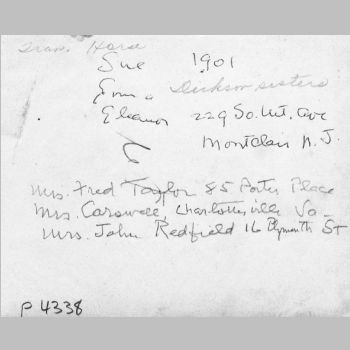 Trans. Horse
Sue 1901
Emma Dickson sisters
Eleanor 229 So. Mt. Ave
Montclair N.J.
Mrs. Fred Taylor 85 Porter Place
Mrs. Carswell, Charlottesville Va_
Mrs. John Redfield 16 Plymouth St
P 4338